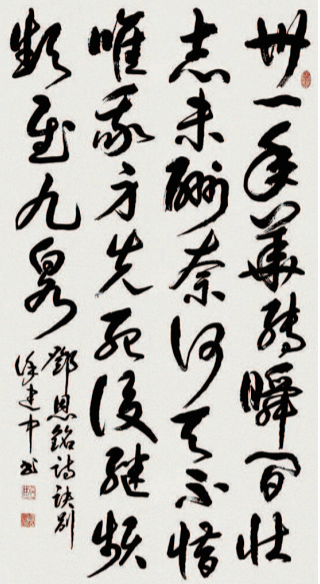 卅一年華轉瞬間壯
志未酬奈何天不惜
唯我身先死後繼頻
頻慰九泉
鄧恩銘詩訣別
徐建中書